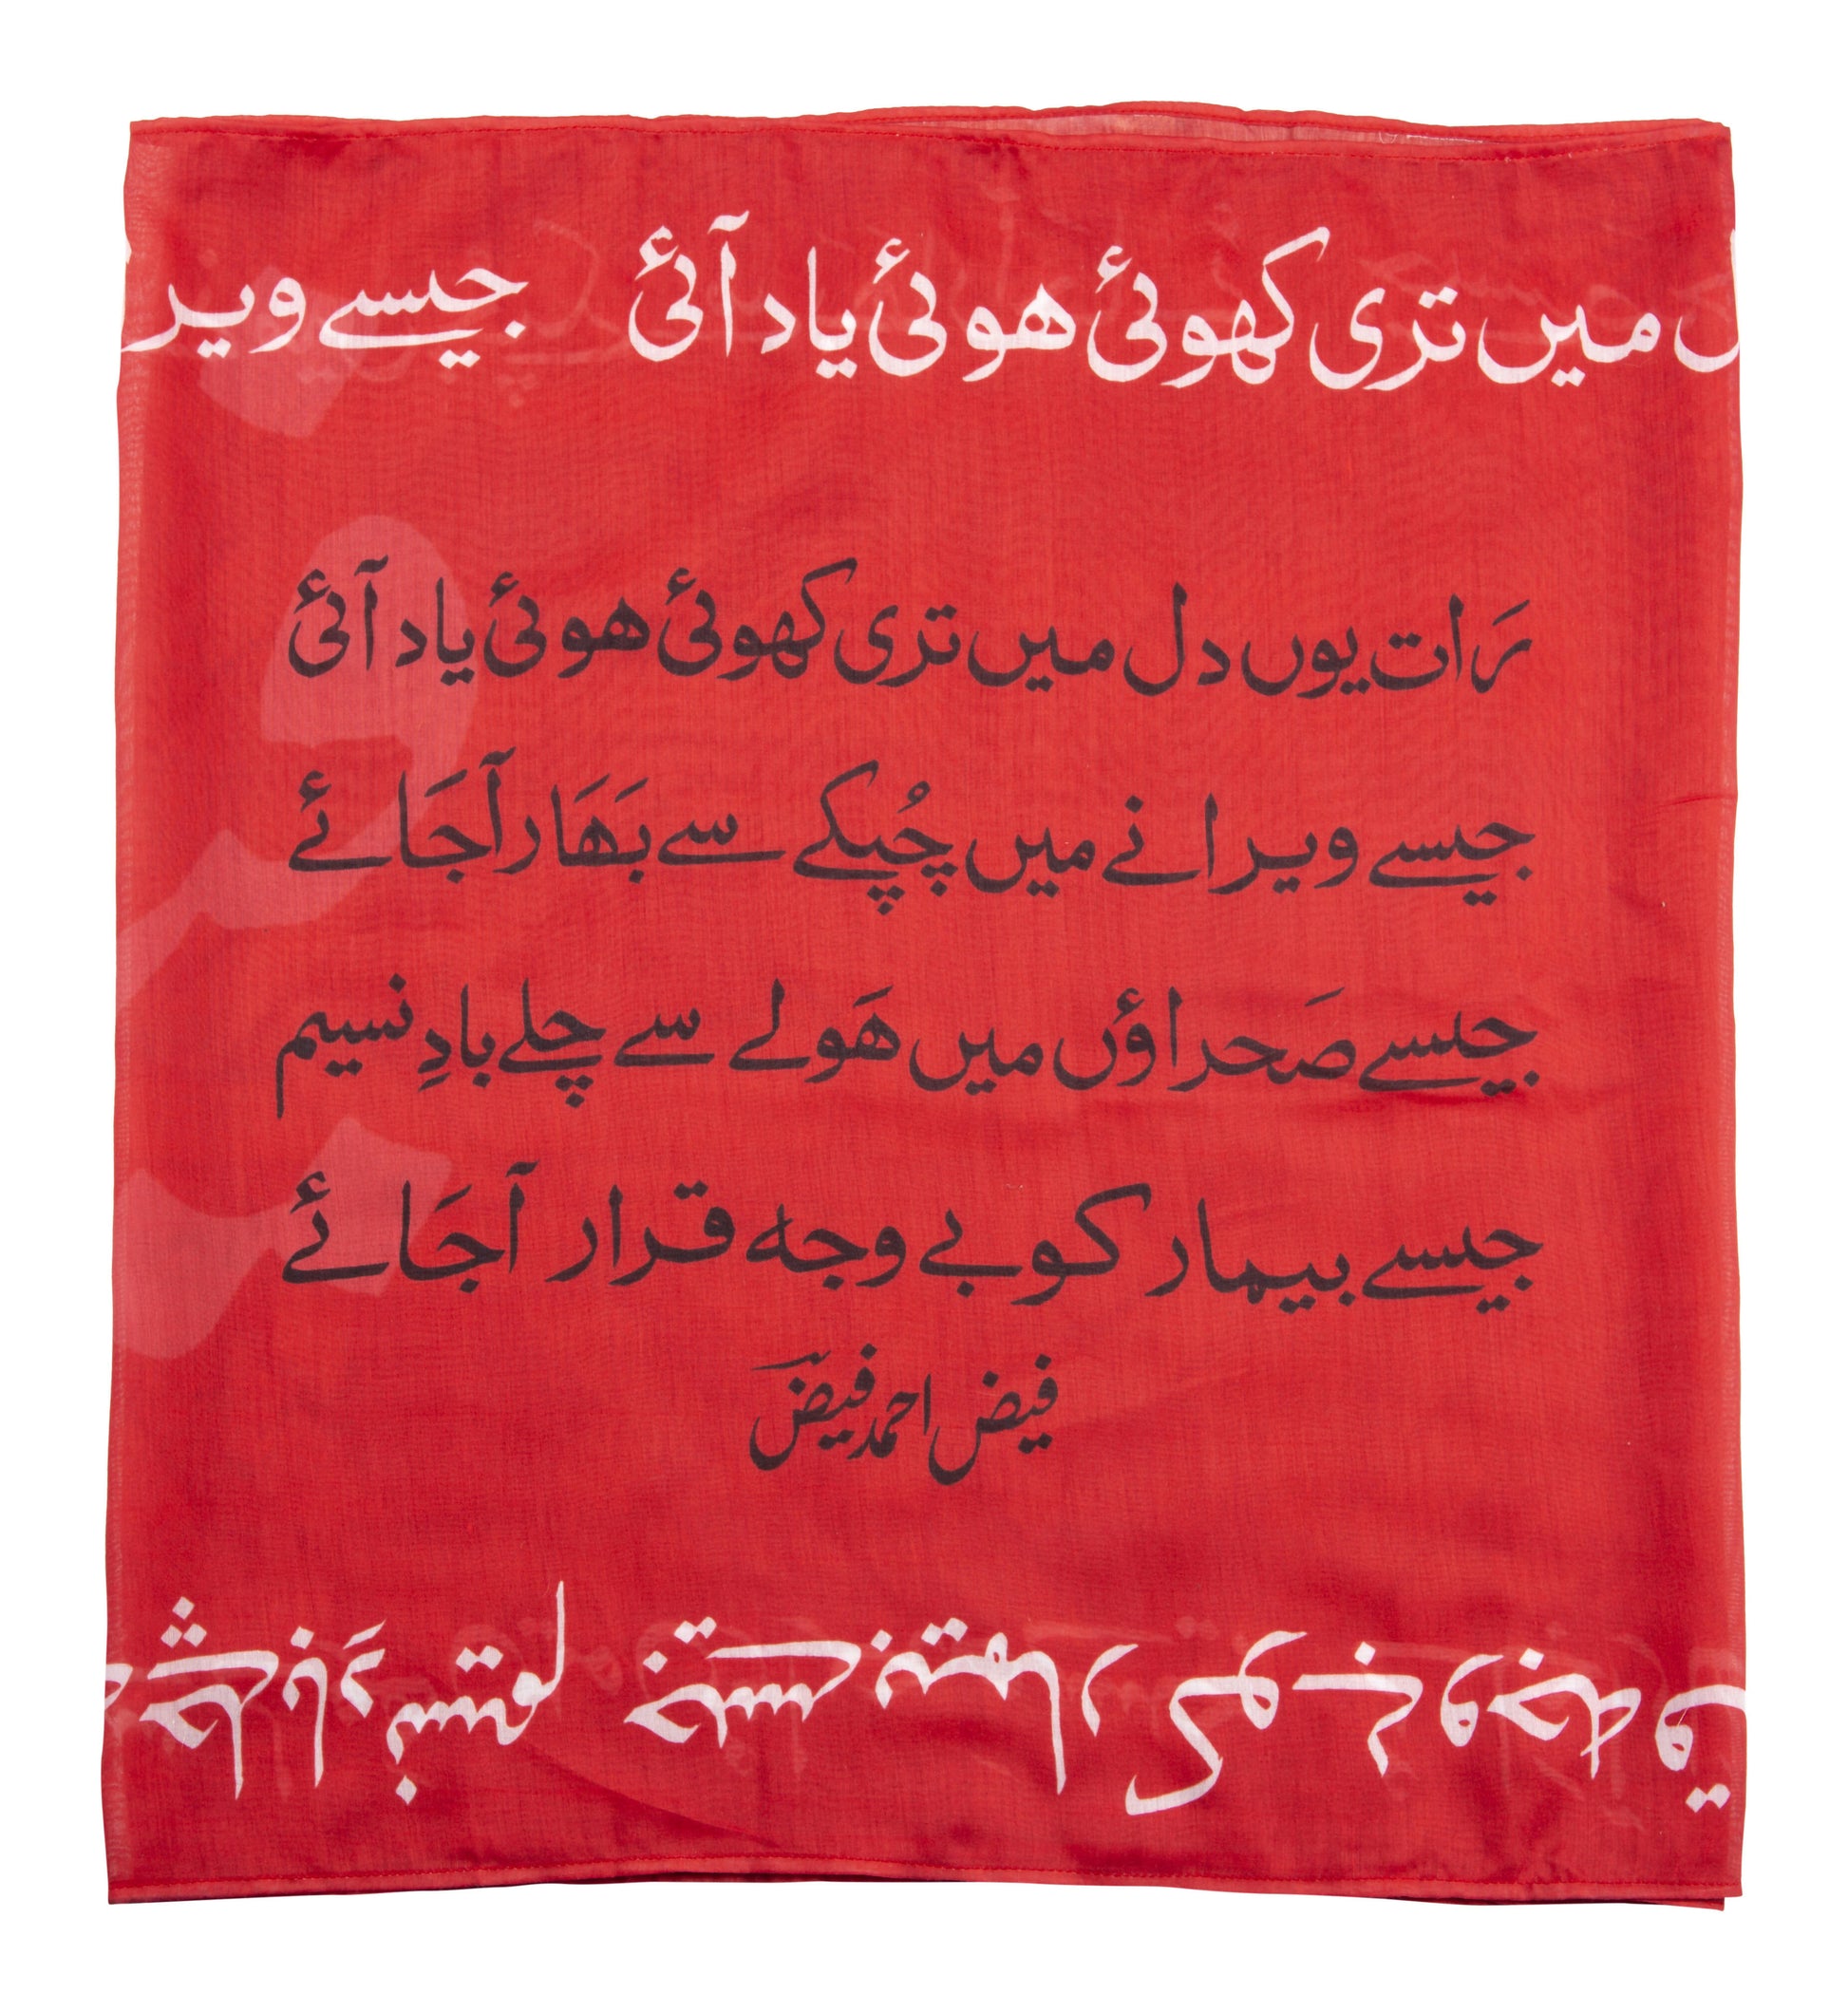 میں تری کھوئی ھوئی یاد آئی جیسے ویر
رَات یوں دل میں تری کھوئی ھوئی یاد آئی
جیسے ویرانے میں چُپکے سے بَھَار آجَائے
جیسے صَحراؤں میں ھَولے سے چلے بادِ نسیم
جیسے بیمار کو بے وجہ قرار آجَائے
فیض احمد فیضؔ
چلے بادِ نسیم جیسے بیمار کو بے وجہ